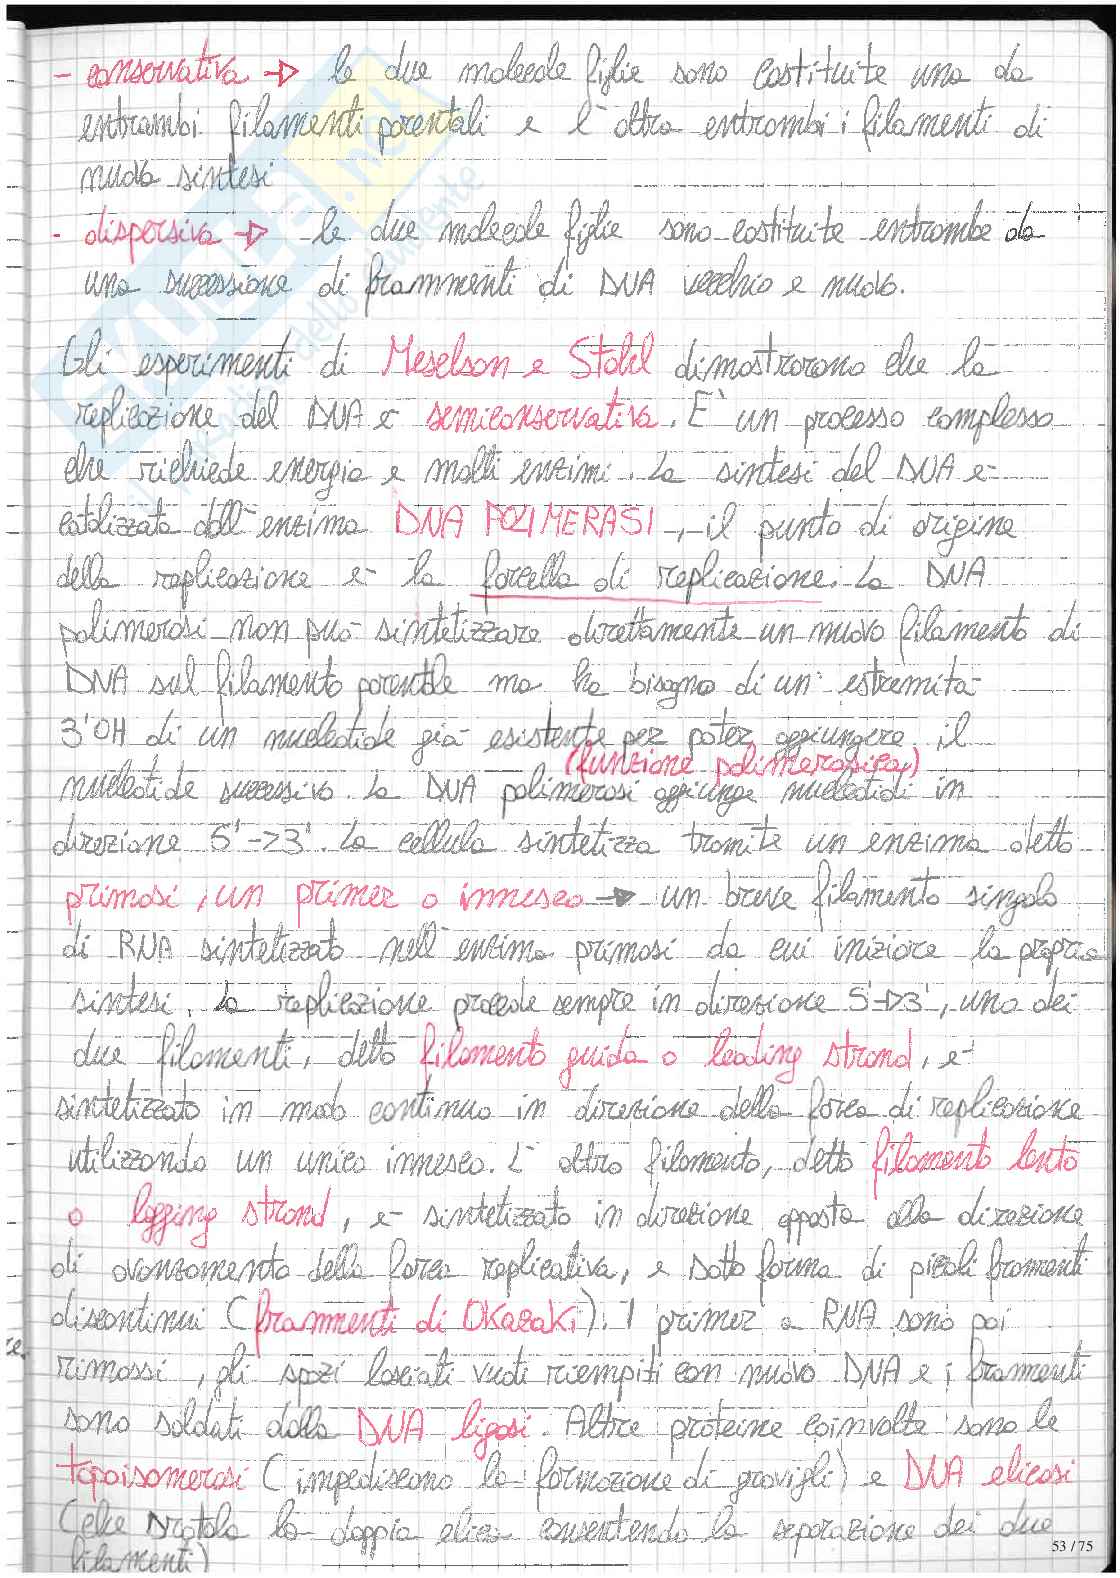 - conservativa -> le due molecole figlie sono costituite una da
entrambi filamenti parentali e l'altra entrambi i filamenti di
nuova sintesi
- dispersiva -> le due molecole figlie sono costituite entrambe da
una successione di frammenti di DNA vecchio e nuovo.
Gli esperimenti di Meselson e Stahl dimostrarono che la
replicazione del DNA è semiconservativa. E' un processo complesso
che richiede energia e molti enzimi. La sintesi del DNA è
catalizzata dall'enzima DNA POLIMERASI, il punto di origine
della replicazione è la forcella di replicazione. La DNA
polimerasi non può sintetizzare direttamente un nuovo filamento di
DNA sul filamento parentale ma ha bisogno di un' estremità
3'OH di un nucleotide già esistente per poter aggiungere il
(funzione polimerasica)
nucleotide successivo. La DNA polimerasi aggiunge nucleotidi in
direzione 5'->3'. La cellula sintetizza tramite un enzima detto
primasi, un primer o innesco -> un breve filamento singolo
di RNA sintetizzato nell'enzima primasi da cui iniziare la propria
sintesi. La replicazione procede sempre in direzione 5'->3', uno dei
due filamenti, detto filamento guida o leading strand, è
sintetizzato in modo continuo in direzione della forca di replicazione
utilizzando un unico innesco. L' altro filamento, detto filamento lento
o lgging strand, è sintetizzato in direzione opposta alla direzione
di avanzamento della forca replicativa, e sotto forma di piccoli frammenti
discontinui (frammenti di OKazaKi). I primer a RNA sono poi
re.
rimossi, gli spazi lasciati vuoti riempiti con nuovo DNA e i frammenti
sono saldati dalla DNA ligasi. Altre proteine coinvolte sono le
topoisomerasi (impediscono la formazione di grovigli) e DNA elicasi
(che srotola la doppia elica consentendo la separazione dei due
filamenti)
53 / 75
SKUOLA.net
il paradiso dello studente